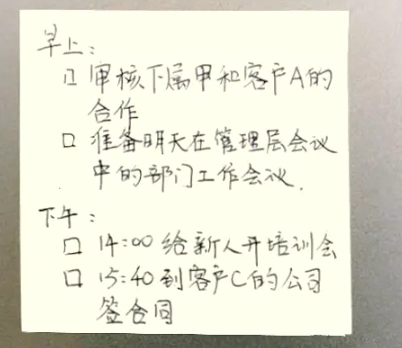 早上：
□ 审核下属甲和客户A的
合作
□ 准备明天在管理层会议
中的部门工作会议.
下午：
□ 14:00 给新人开培训会
□ 15:40 到客户C的公司
签合同